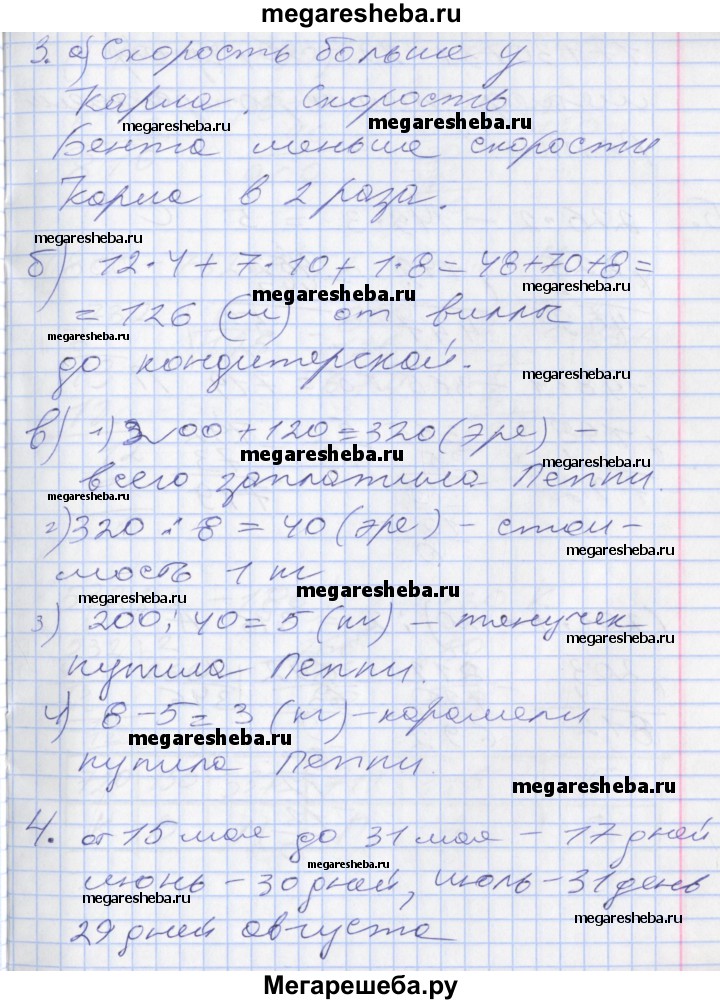 megaresheba.ru
3. а) Скорость больше у
Карла. Скорость
megaresheba.ru megaresheba.ru
Бента меньше скорости
Карла в 2 раза.
megaresheba.ru
б) 12·4+7·10+1·8=48+70+8=
megaresheba.ru
=126 (м) от виллы
megaresheba.ru
до кондитерской.
megaresheba.ru
в) 1) 200+120=320(эре) –
megaresheba.ru megaresheba.ru
всего заплатила Пеппи.
2) 320:8=40(эре) – стои-
megaresheba.ru
мость 1 кг
megaresheba.ru
3) 200:40=5(кг) – тянучек
megaresheba.ru
купила Пеппи.
4) 8-5=3(кг) – карамели
megaresheba.ru
купила Пеппи.
megaresheba.ru
4. от 15 мая до 31 мая – 17 дней
megaresheba.ru
июнь – 30 дней, июль – 31 день
megaresheba.ru
29 дней августа
megaresheba.ru
Мегарешеба.ру